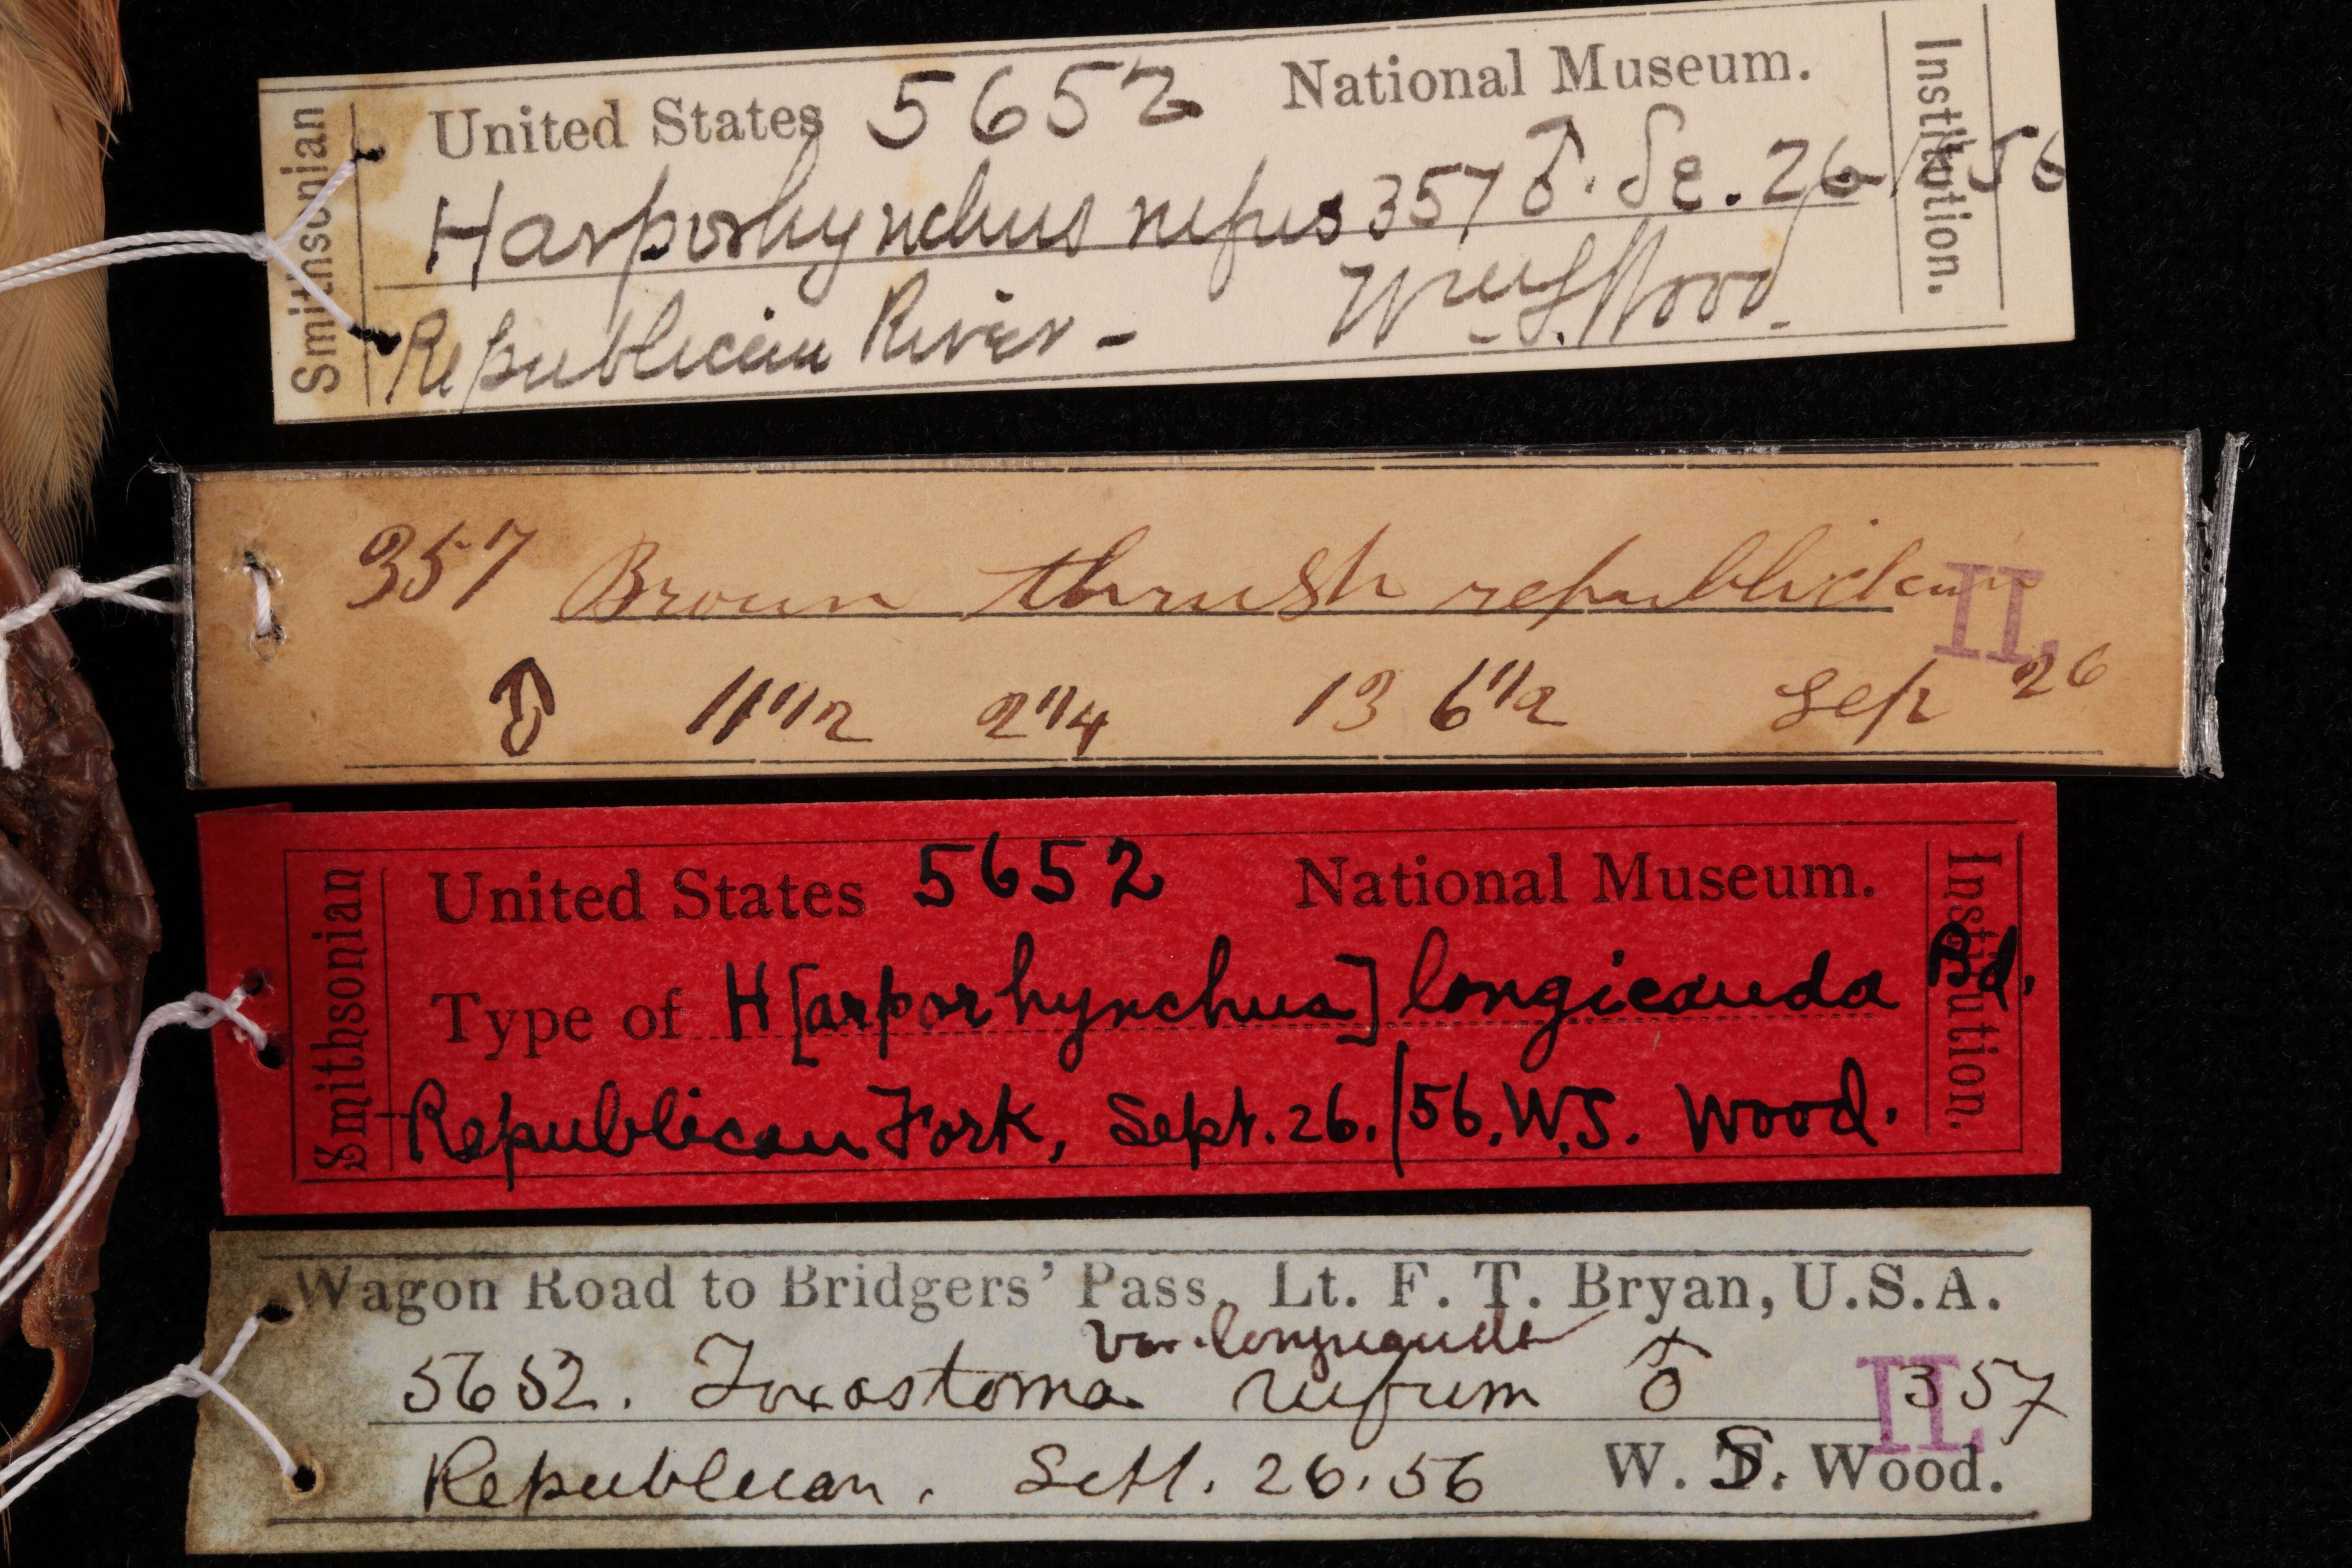 Smithsonian
United States 5652 National Museum.
Harporhynchus rufus 357 ♂. Se. 26/56
Republican River - Wm S. Wood.
Institution.
357 Brown thrush republican
II.
♂ 11 1/2 2 1/4 13 6 1/2 Sep 26
Smithsonian
United States 5652 National Museum.
Type of H[arporhynchus] longicauda Bd.
Republican Fork, Sept. 26./56. W.S. Wood.
Institution.
Wagon Road to Bridgers' Pass. Lt. F. T. Bryan, U.S.A.
var. longicauda
5652. Toxostoma rufum ♂ 357
II.
Republican. Sept. 26. 56 W. S. Wood.